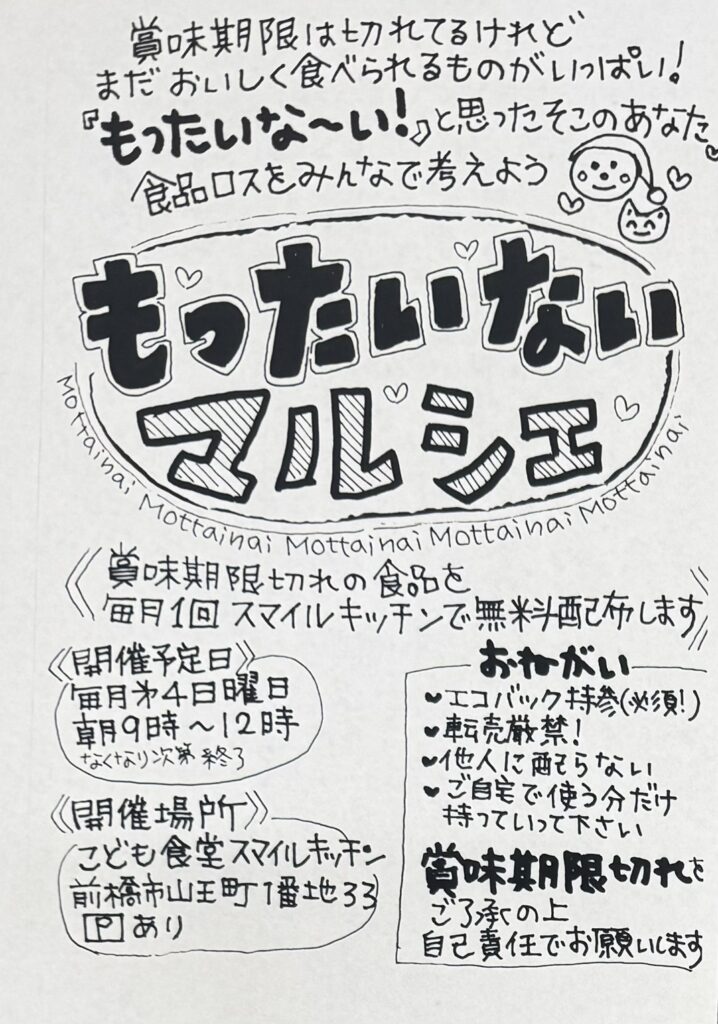 賞味期限は切れてるけれど
まだおいしく食べられるものがいっぱい!
『もったいな〜い!』と思ったそこのあなた
食品ロスをみんなで考えよう
もったいない
マルシェ
Mottainai Mottainai Mottainai Mottainai Mottainai
《賞味期限切れの食品を
毎月1回 スマイルキッチンで無料配布します》
《開催予定日》
毎月第4日曜日
朝9時〜12時
なくなり次第終了
《開催場所》
こども食堂スマイルキッチン
前橋市山王町1番地33
Pあり
おねがい
♥エコバック持参(必須!)
♥転売厳禁!
♥他人に配らない
♥ご自宅で使う分だけ
持っていって下さい
賞味期限切れを
ご了承の上
自己責任でお願いします